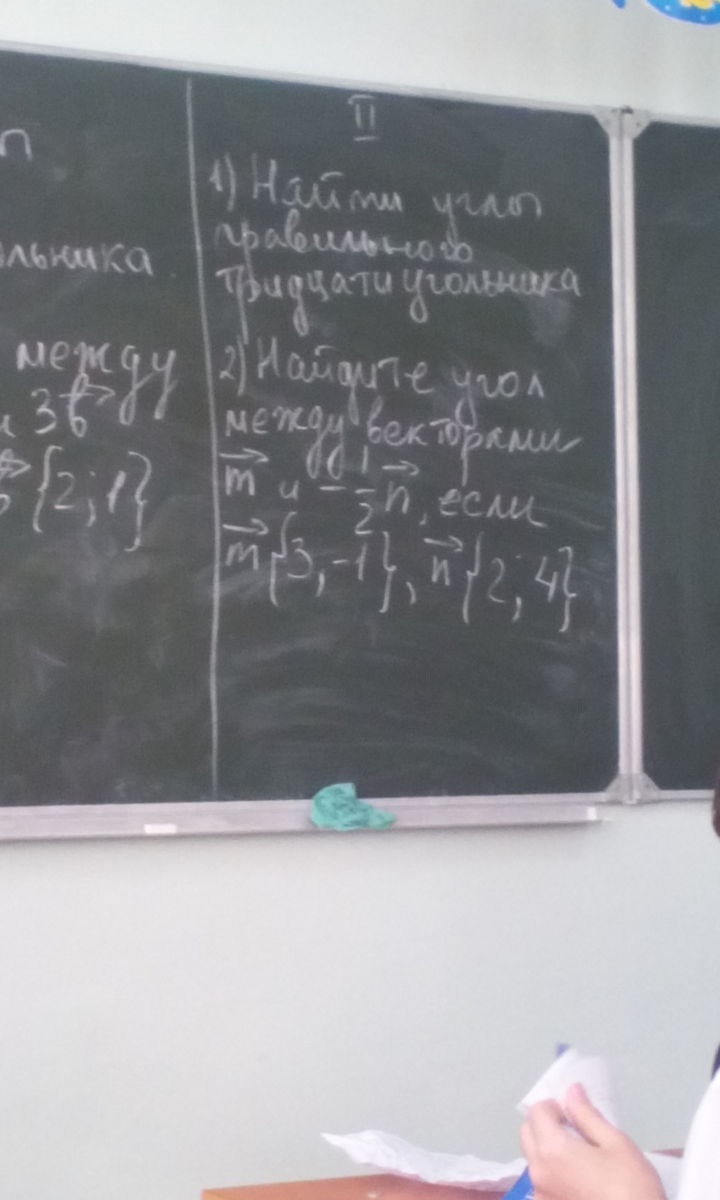 п
ольника
между
и 3b
{2; 1}
II
1) Найти углы
правильного
тридцатиугольника
2) Найдите угол
между векторами
m и -1/2 n, если
m{3, -1}, n{2; 4}